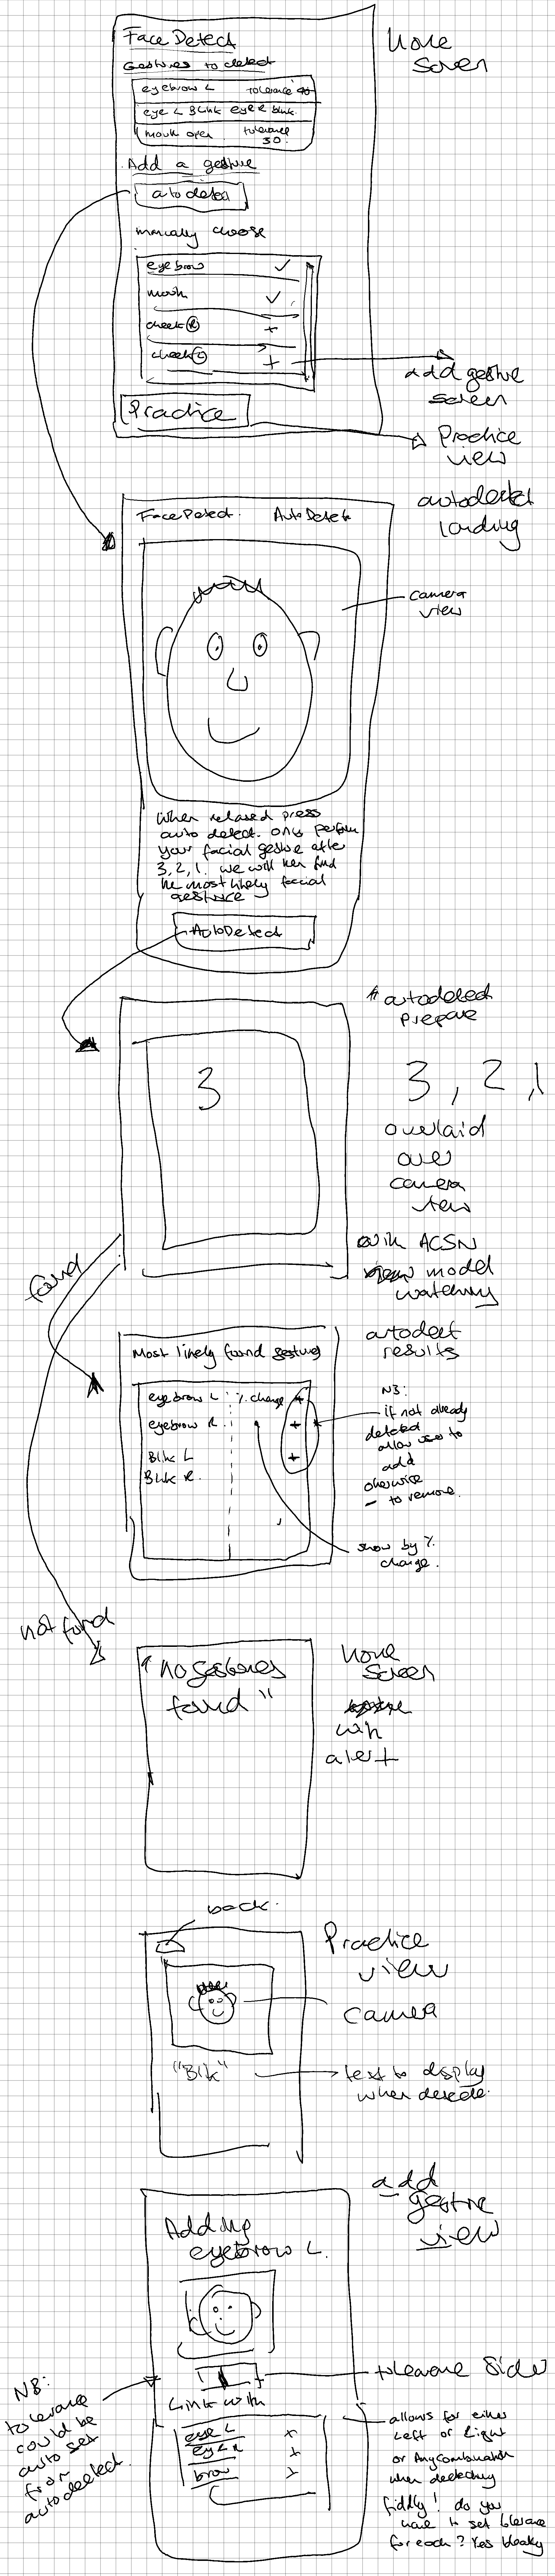 Face Detect
Home
Screen
Gestures to detect
eyebrow L tolerance 40
eye L Blink eye R blink.
mouth open tolerance
30.
Add a gesture
auto detect
manually choose
eyebrow ✓
mouth ✓
cheek Ⓡ +
cheek Ⓛ +
add gesture
screen
Practice
Practice
view
autodetect
loading
Face Detect. AutoDetect
camera
view
When relaxed press
auto detect. only perform
your facial gesture after
3, 2, 1. we will then find
the most likely facial
gesture
AutoDetect
autodetect
prepare
3
3, 2, 1
overlaid
over
camera
view
with
model
watching
found
autodetect
results
Most likely found gestures
eyebrow L % change +
eyebrow R. +
Blik L +
Blik R.
NB:
if not already
detected
allow user to
add
otherwise
- to remove.
show by %
change.
not found
"no gestures
found"
home
screen
with
alert
back.
Practice
view
camera
"Blk"
text to display
when detected.
add
gesture
view
Adding
eyebrow L.
tolerance slider
NB:
tolerance
could be
auto set
from
autodetect.
Link with
eye L +
eye R +
brow +
allows for either
Left or Right
or Any combination
when detecting
fiddly! do you
have to set tolerance
for each? Yes